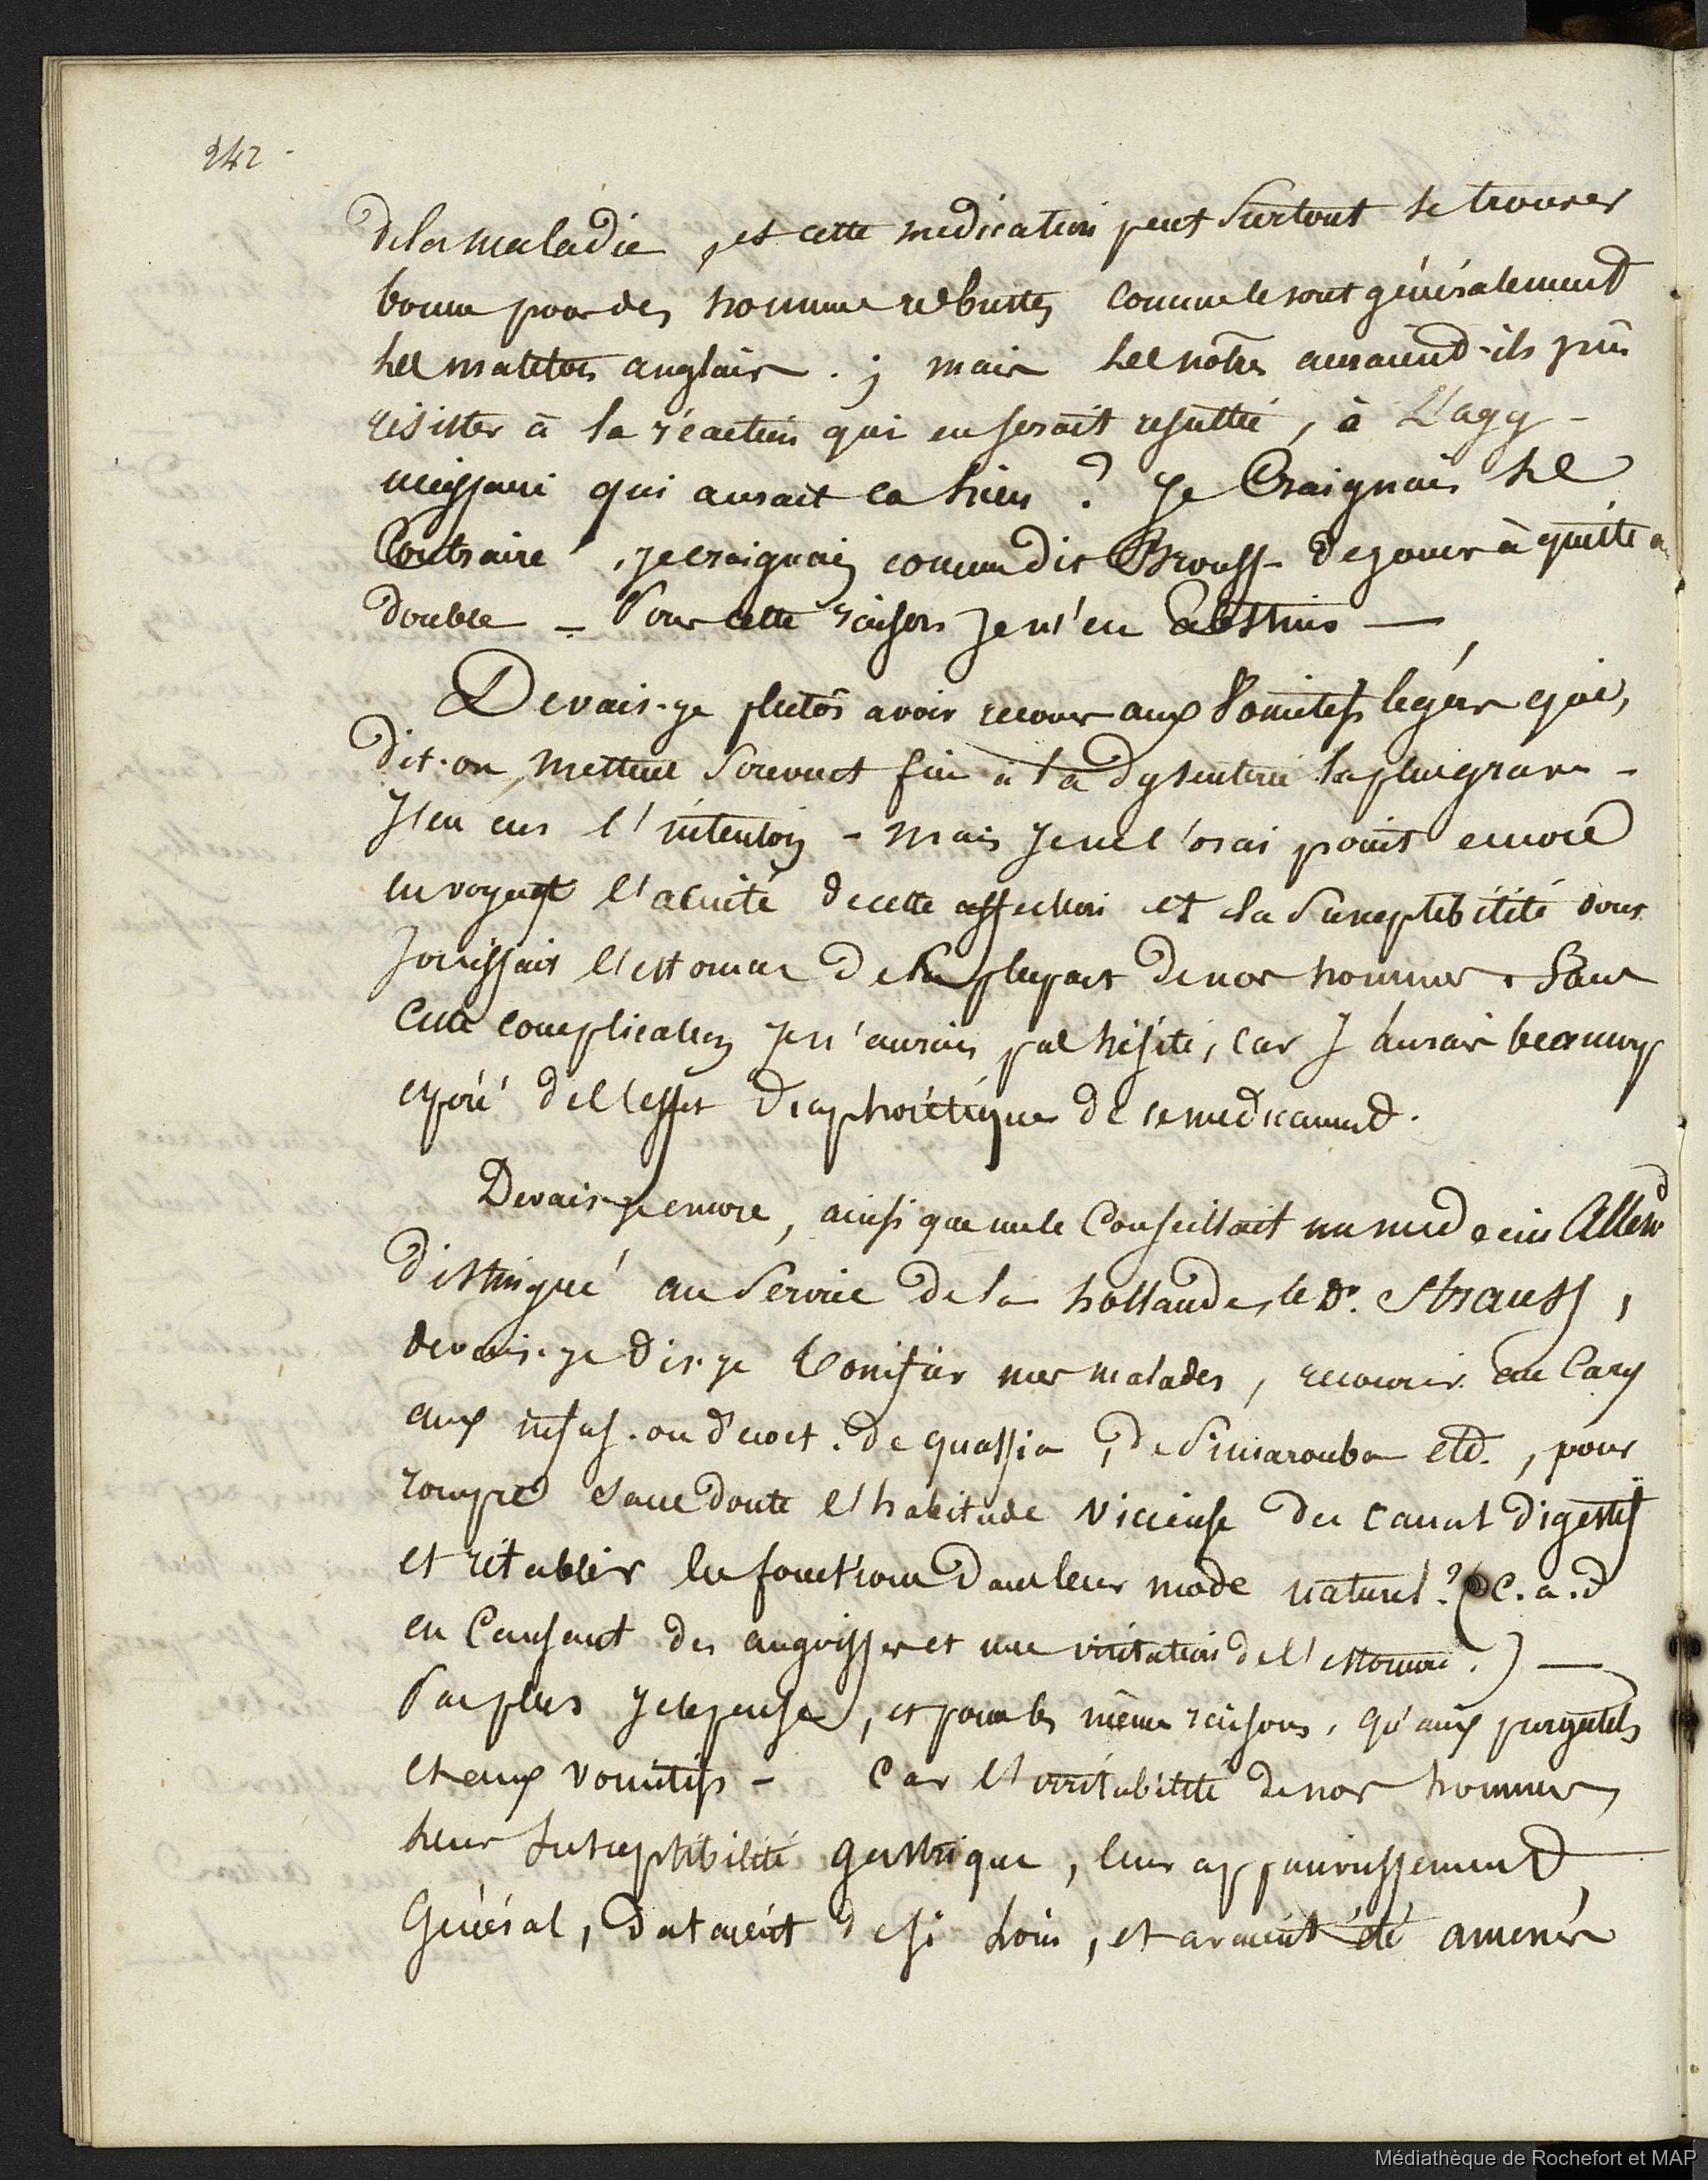 242 -
de la maladie, et cette medication peut surtout se trouver
bonne pour des homme robustes comme le sont généralement
les matelots anglais. ; mais les nôtres auraient-ils pû
résister à la réaction qui en serait resultée, à
qui aurait eu lieu ? Je Craignais le
Contraire, je craignais comme dit Brouss- de jouer à quitte a
double - Pour cette raison Je m'en abstins —
Devais-je plutôt avoir recours aux Vomitifs legers qui,
dit-on, mettent souvent fin à la dysenterie la plus grave -
J'en eus l'intention - mais Je ne l'osai point encore
en voyant l'acuité de cette affection et la Susceptibilité dont
Jouissait l'estomac de la plupart de nos hommes. Sans
Cette complication je n'aurais pas hésité, car J'aurais beaucoup
espéré de l'effet diaphorétique de ce medicament.
Devais-je encore, ainsi que me le Conseillait un medecin Allemd
distingué au Service de la hollande, le Dr. Strauss,
devais-je dis-je tonifier mes malades, recourir au
aux infus. ou décoct. de quassia, de Simarouba etc., pour
rompre sans doute l'habitude Vicieuse du canal digestif
et rétablir les fonctions dans leur mode naturel ? (C.a.d
en Causant des angoisses et une irritation de l'estomac.) —
Pas plus je le pense, et pour les même raisons, qu'aux purgatifs
et aux vomitifs - Car l'irritabilité de nos hommes,
leur susceptibilité gastrique, leur appauvrissement
Général, dataient de si loin, et avaient été amenés
Médiathèque de Rochefort et MAP